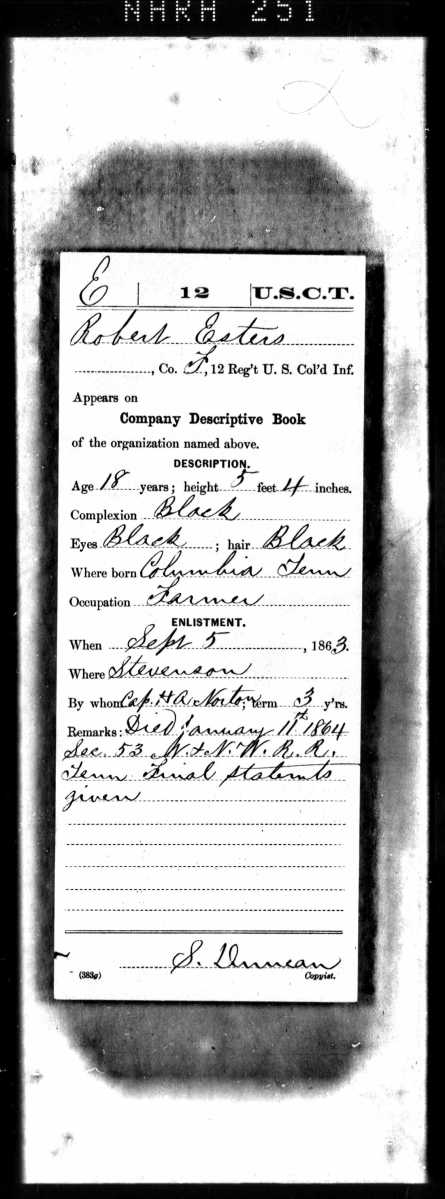 NARA 251
E | 12 | U.S.C.T.
Robert Esters
, Co. F, 12 Reg't U. S. Col'd Inf.
Appears on
Company Descriptive Book
of the organization named above.
DESCRIPTION.
Age 18 years; height 5 feet 4 inches.
Complexion Black
Eyes Black ; hair Black
Where born Columbia Tenn
Occupation Farmer
ENLISTMENT.
When Sept 5 , 1863.
Where Stevenson
By whom Cap. H A Norton; term 3 y'rs.
Remarks: Died January 11th 1864
Sec. 53 N. & N. W. R. R.
Tenn Final statemts
given
S. Duncan
(383g) Copyist.